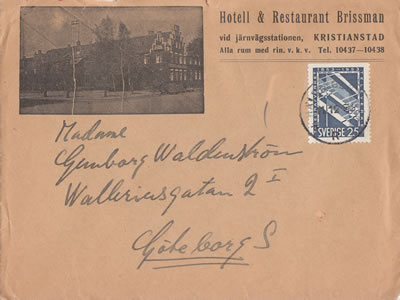 Hotell & Restaurant Brissman
vid järnvägsstationen, KRISTIANSTAD
Alla rum med rin. v. k. v. Tel. 10437—10438
SVERIGE 25
Madame
Gunborg Waldenström
Walleriusgatan 2 I
Göteborg S